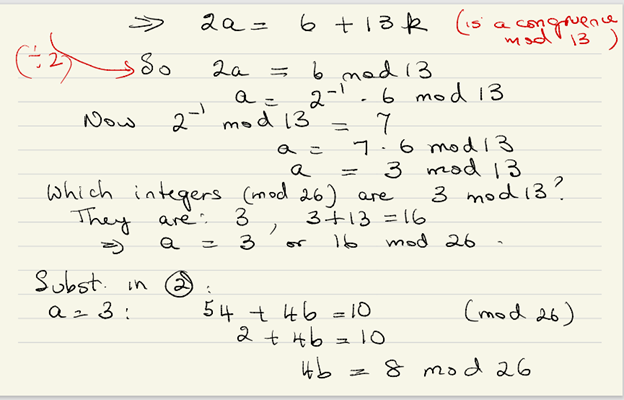 ⇒ 2a = 6 + 13k (is a congruence mod 13)
(÷2) So 2a = 6 mod 13
a = 2⁻¹ · 6 mod 13
Now 2⁻¹ mod 13 = 7
a = 7 · 6 mod 13
a = 3 mod 13
Which integers (mod 26) are 3 mod 13?
They are: 3, 3+13 = 16
⇒ a = 3 or 16 mod 26.
Subst. in ②:
a = 3: 54 + 4b = 10 (mod 26)
2 + 4b = 10
4b = 8 mod 26